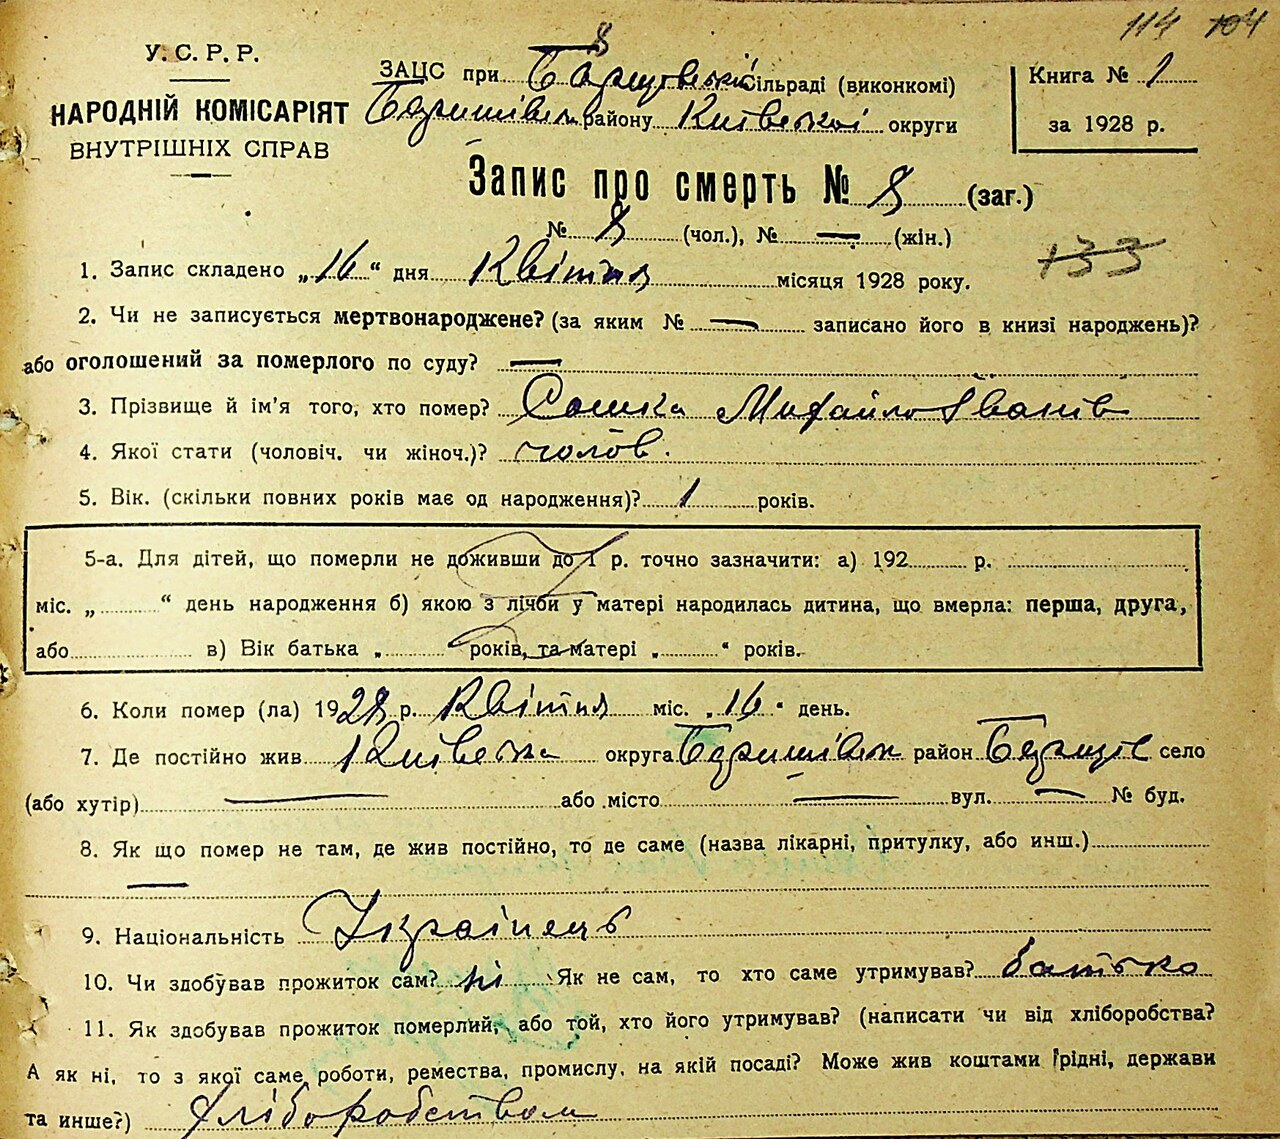 114 104
У. С. Р. Р.
НАРОДНІЙ КОМІСАРІЯТ
ВНУТРІШНІХ СПРАВ
ЗАЦС при Борщовській сільраді (виконкомі)
Баришівськ району Київської округи
Книга № 1
за 1928 р.
Запис про смерть № 8 (заг.)
№ 8 (чол.), № — (жін.)
133
1. Запис складено „16“ дня Квітня місяця 1928 року.
2. Чи не записується мертвонароджене? (за яким № — записано його в книзі народжень)?
або оголошений за померлого по суду? —
3. Прізвище й ім'я того, хто помер? Сошка Михайло Іванів
4. Якої стати (чоловіч. чи жіноч.)? чолов.
5. Вік. (скільки повних років має од народження)? 1 років.
5-а. Для дітей, що померли не доживши до 1 р. точно зазначити: а) 192 р.
міс. „ “ день народження б) якою з лічби у матері народилась дитина, що вмерла: перша, друга,
або в) Вік батька „ років, та матері „ “ років.
6. Коли помер (ла) 1928 р. Квітня міс. „16“ день.
7. Де постійно жив Київська округа Баришівськ район Борщів село
(або хутір) — або місто — вул. — № буд.
8. Як що помер не там, де жив постійно, то де саме (назва лікарні, притулку, або инш.)
—
9. Національність Українець
10. Чи здобував прожиток сам? ні Як не сам, то хто саме утримував? батько
11. Як здобував прожиток померлий, або той, хто його утримував? (написати чи від хліборобства?
А як ні, то з якої саме роботи, ремества, промислу, на якій посаді? Може жив коштами рідні, держави
та инше?) Хліборобством